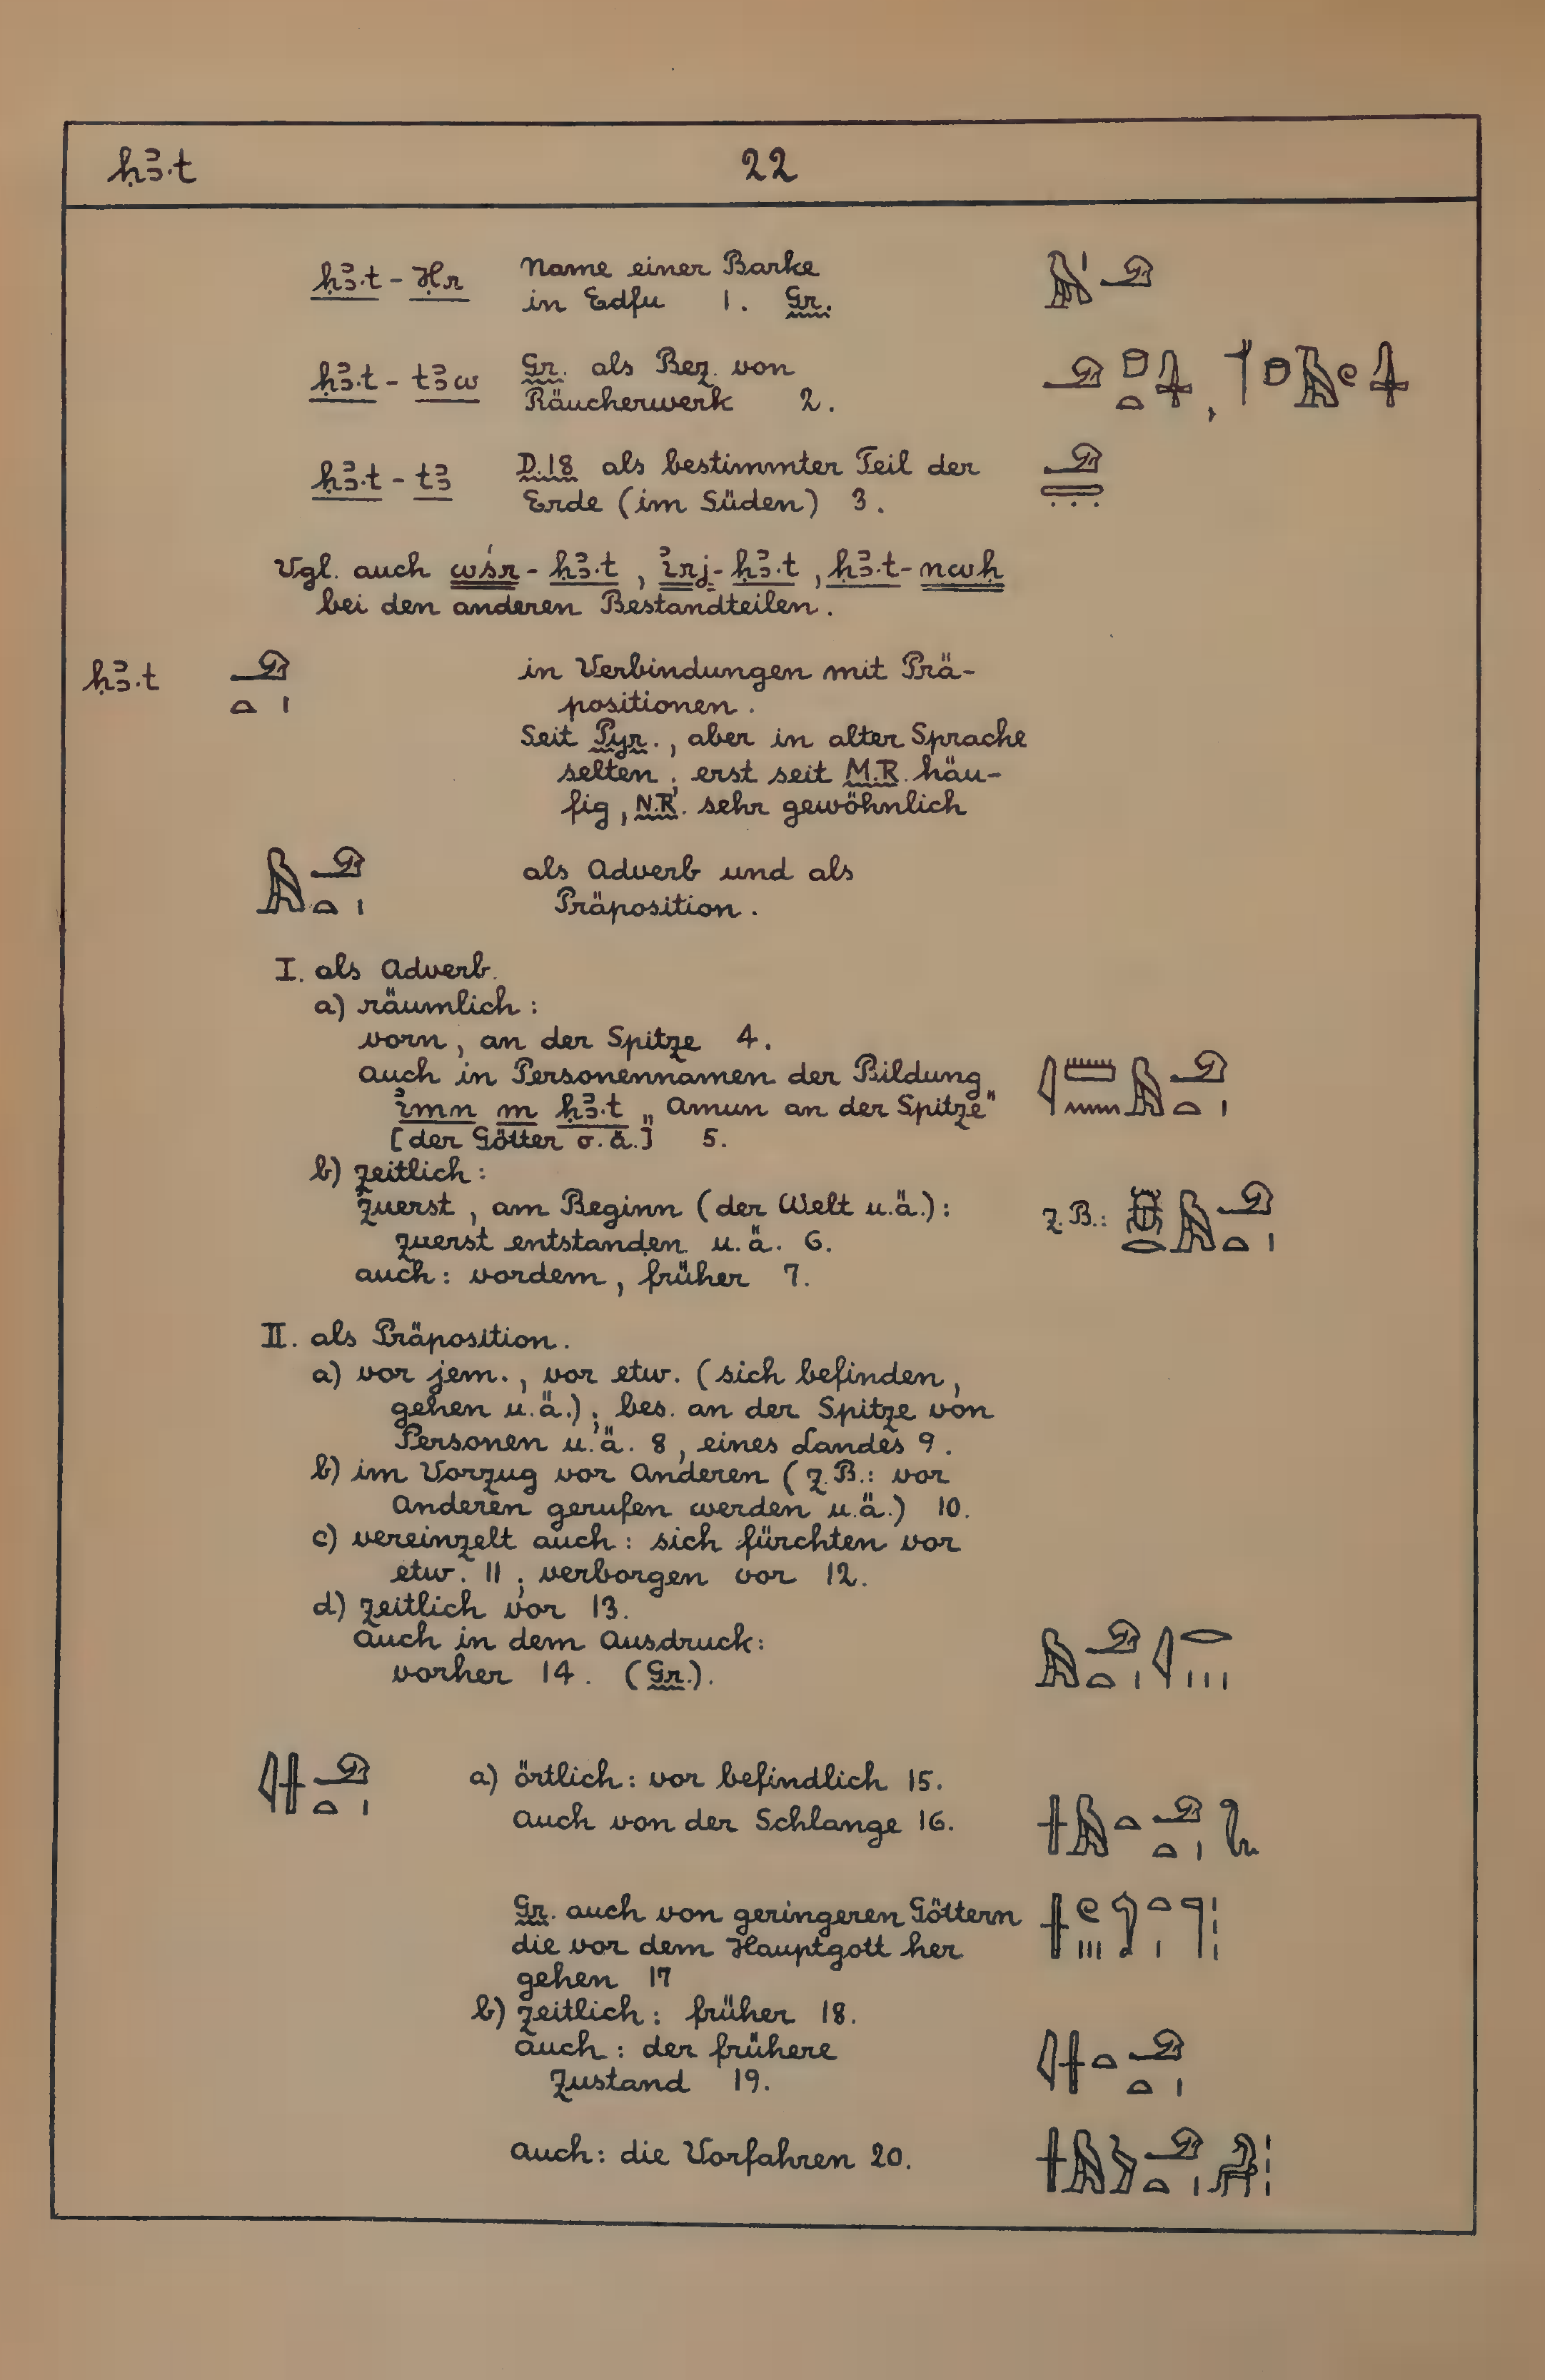 ḥꜣ.t 22
ḥꜣ.t - Ḥr Name einer Barke
in Edfu 1. Gr.
ḥꜣ.t - tꜣw Gr. als Bez. von
Räucherwerk 2.
ḥꜣ.t - tꜣ D.18 als bestimmter Teil der
Erde (im Süden) 3.
Vgl. auch wśr - ḥꜣ.t, ı͗rj - ḥꜣ.t, ḥꜣ.t - nwḥ
bei den anderen Bestandteilen.
ḥꜣ.t in Verbindungen mit Prä-
positionen.
Seit Pyr., aber in alter Sprache
selten; erst seit M.R. häu-
fig, N.R. sehr gewöhnlich
als Adverb und als
Präposition.
I. als Adverb.
a) räumlich:
vorn, an der Spitze 4.
auch in Personennamen der Bildung
ı͗mn m ḥꜣ.t „Amun an der Spitze"
[der Götter o.ä.] 5.
b) zeitlich:
zuerst, am Beginn (der Welt u.ä.): z.B.:
zuerst entstanden u.ä. 6.
auch: vordem, früher 7.
II. als Präposition.
a) vor jem., vor etw. (sich befinden,
gehen u.ä.); bes. an der Spitze von
Personen u.ä. 8, eines Landes 9.
b) im Vorzug vor Anderen (z.B.: vor
Anderen gerufen werden u.ä.) 10.
c) vereinzelt auch: sich fürchten vor
etw. 11; verborgen vor 12.
d) zeitlich vor 13.
auch in dem Ausdruck:
vorher 14. (Gr.).
a) örtlich: vor befindlich 15.
auch von der Schlange 16.
Gr. auch von geringeren Göttern
die vor dem Hauptgott her
gehen 17
b) zeitlich: früher 18.
auch: der frühere
Zustand 19.
auch: die Vorfahren 20.